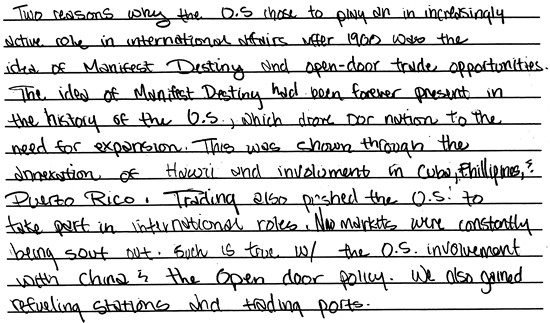 Two reasons why the U.S chose to play an in increasingly
active role in international affairs after 1900 was the
idea of Manifest Destiny and open-door trade opportunities.
The idea of Manifest Destiny had been forever present in
the history of the U.S., which drove our nation to the
need for expansion. This was shown through the
annexation of Hawii and involument in Cuba, Phillipines, &
Puerto Rico. Trading also pushed the U.S. to
take part in international roles. New markets were constantly
being sout out. Such is true w/ the U.S. involvement
with China & the Open door policy. We also gained
refueling stations and trading ports.